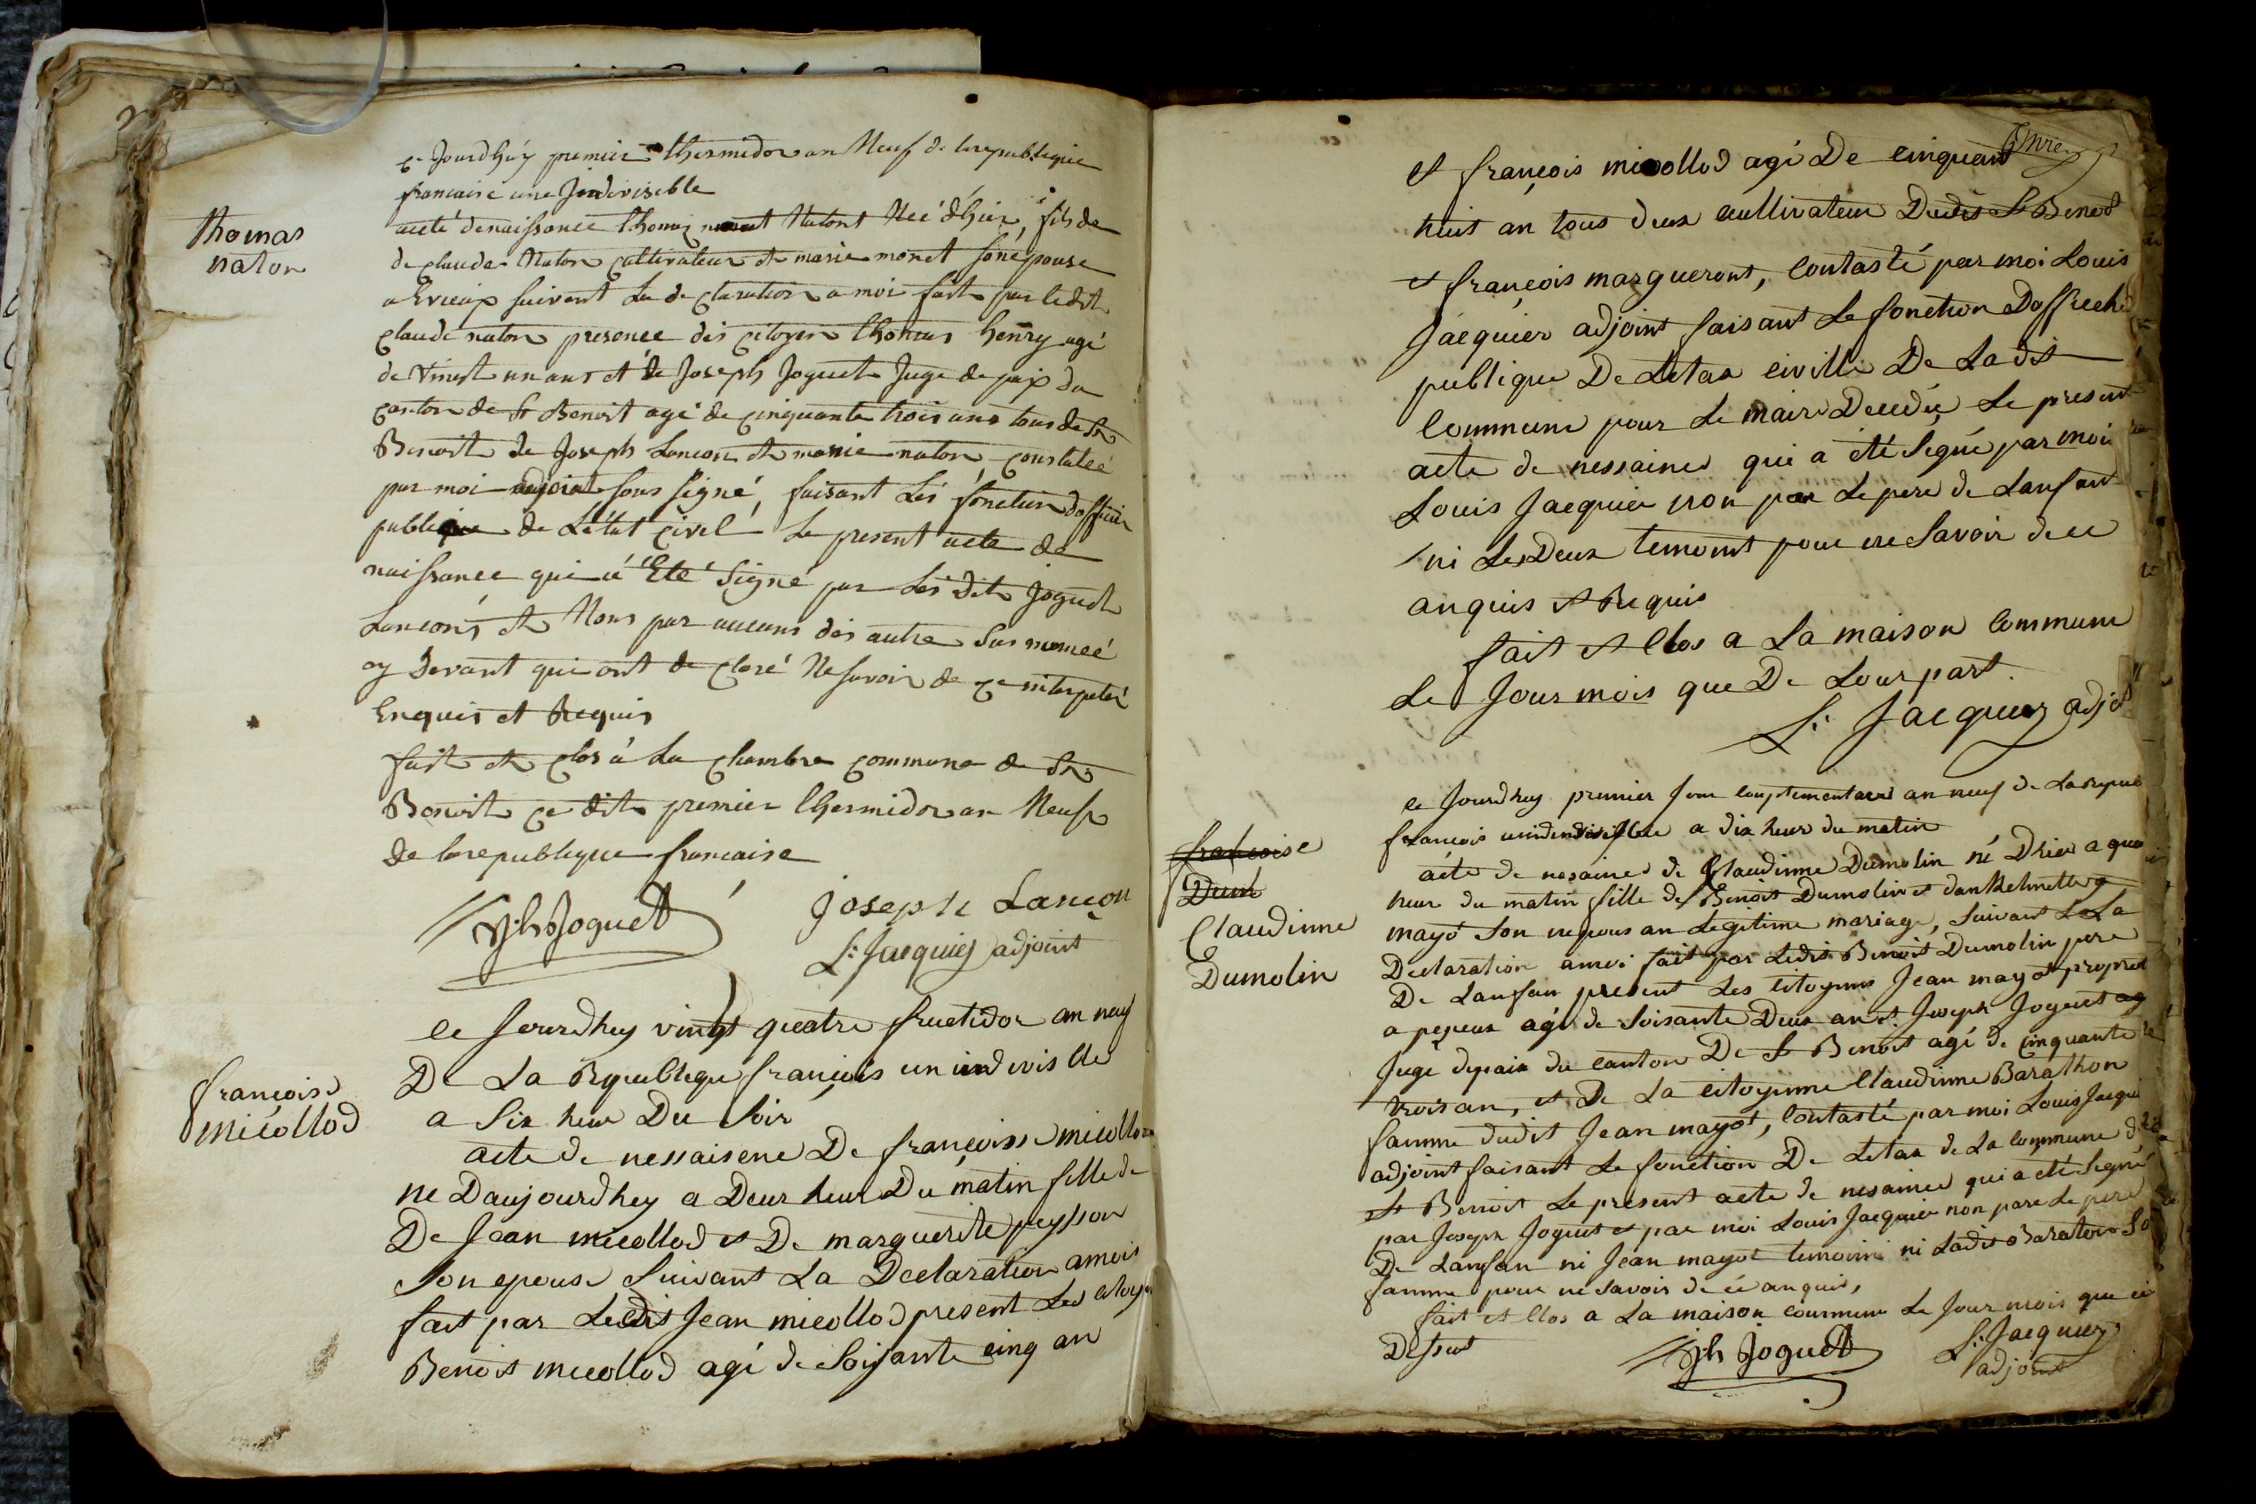 Ce Jourdhuy premier thermidor an Neuf de la republique
francaise une Jndivisible
Thomas
naton
acte de naissance thomas Natont Neé d'hier, fils de
de claude Naton cultivateur et marie monet son épouse
a Evieux suivant la de claration a moi fait par ledit
claude naton presence des citoyen thomas henry agé
de vinst un ans et de Joseph Joguet Juge de paix du
canton de St Benoit agé de cinquante trois ans tous de St
Benoit de Joseph Lancon et marie naton constateé
par moi adjoint sous signé, faisant les fonction dofficier
publique de L'état civel le present acte de
naissance qui a Eté signé par les dit Joguet
Lancons et Nons par aucuns des autre sus nomeé
cy devant qui ont de claré Ne savoir de ce interpelé
Enquis et Requis
fait et clos á la chambre commune de St
Benoit ce dit premier thermidor an Neuf
de la republique francaise
Jph Joguet
Joseph Lançon
L: Jacquier adjoint
ce Jourdhuy vingt quatre fructidor an neuf
De La Republique françois un indivisble
a Six heur Du Soir
françoise
micollod
acte de nessaisene De françoisse micollod
ne Daujourdhuy a Deux heur Du matin fille de
De Jean micollod et De marguerite peysson
Son epouse Suivant La Declaration amoi
fait par Ledit Jean micollod present Les citoyen
Benoit micollod agé de Soisante cinq an
et françois micollod agé De cinquant
huit an tous deux cultivateur Dudit St Benoit
et françois margueront, Contasté par moi Louis
Jacquier adjoint faisant Le fonction Doffice
publique De Letas civille De Ladit
Commune pour Le maire Decedé Le present
acte de nessaine qui a été Segné par moi
Louis Jacquier non par Le pere de Lanfant
ni Les Deux temoint pour ne Savoir de ce
anquis et Requis
fait et Clos a La maison Commune
Le Jour mois que De Lour part.
L: Jacquier adjoint
ce Jourdhuy premier Jour Conplementaire an neuf de La Repub
francois unindivisible a dix heur du matin
françoise
Dum
Claudinne
Dumolin
acte de nesaine de Claudinne Dumolin né Dhier a quatre
heur du matin fille de Benoit Dumolin et
mayó Son nepous an Legitime mariage, Suivant La
Declaration amoi fait par Ledit Benoit Dumolin pere
De Lanfan present Les Citoyens Jean mayot propriet
a peyeux agé de Soisante Deux an et Joseph Joguet
Juge depaix du canton De St Benoit agé de cinquante
trois an, et De La citoyenne Claudinne Barathon
famme dudit Jean mayot, Contasté par moi Louis Jacquier
adjoint faisant Le fonction De Letas de La Commune
St Benoit Le present acte de nesaince qui a eté Segné
par Joseph Joguet et par moi Louis Jacquier non par Le pere
De Lanfan ni Jean mayot temoin ni Ladit Baraton Sa
famme pour ne Savoir de ce anquis,
fait et Clos a La maison Commune Le Jour mois que ci
Dessus
Jph Joguet
L: Jacquier
adjoint